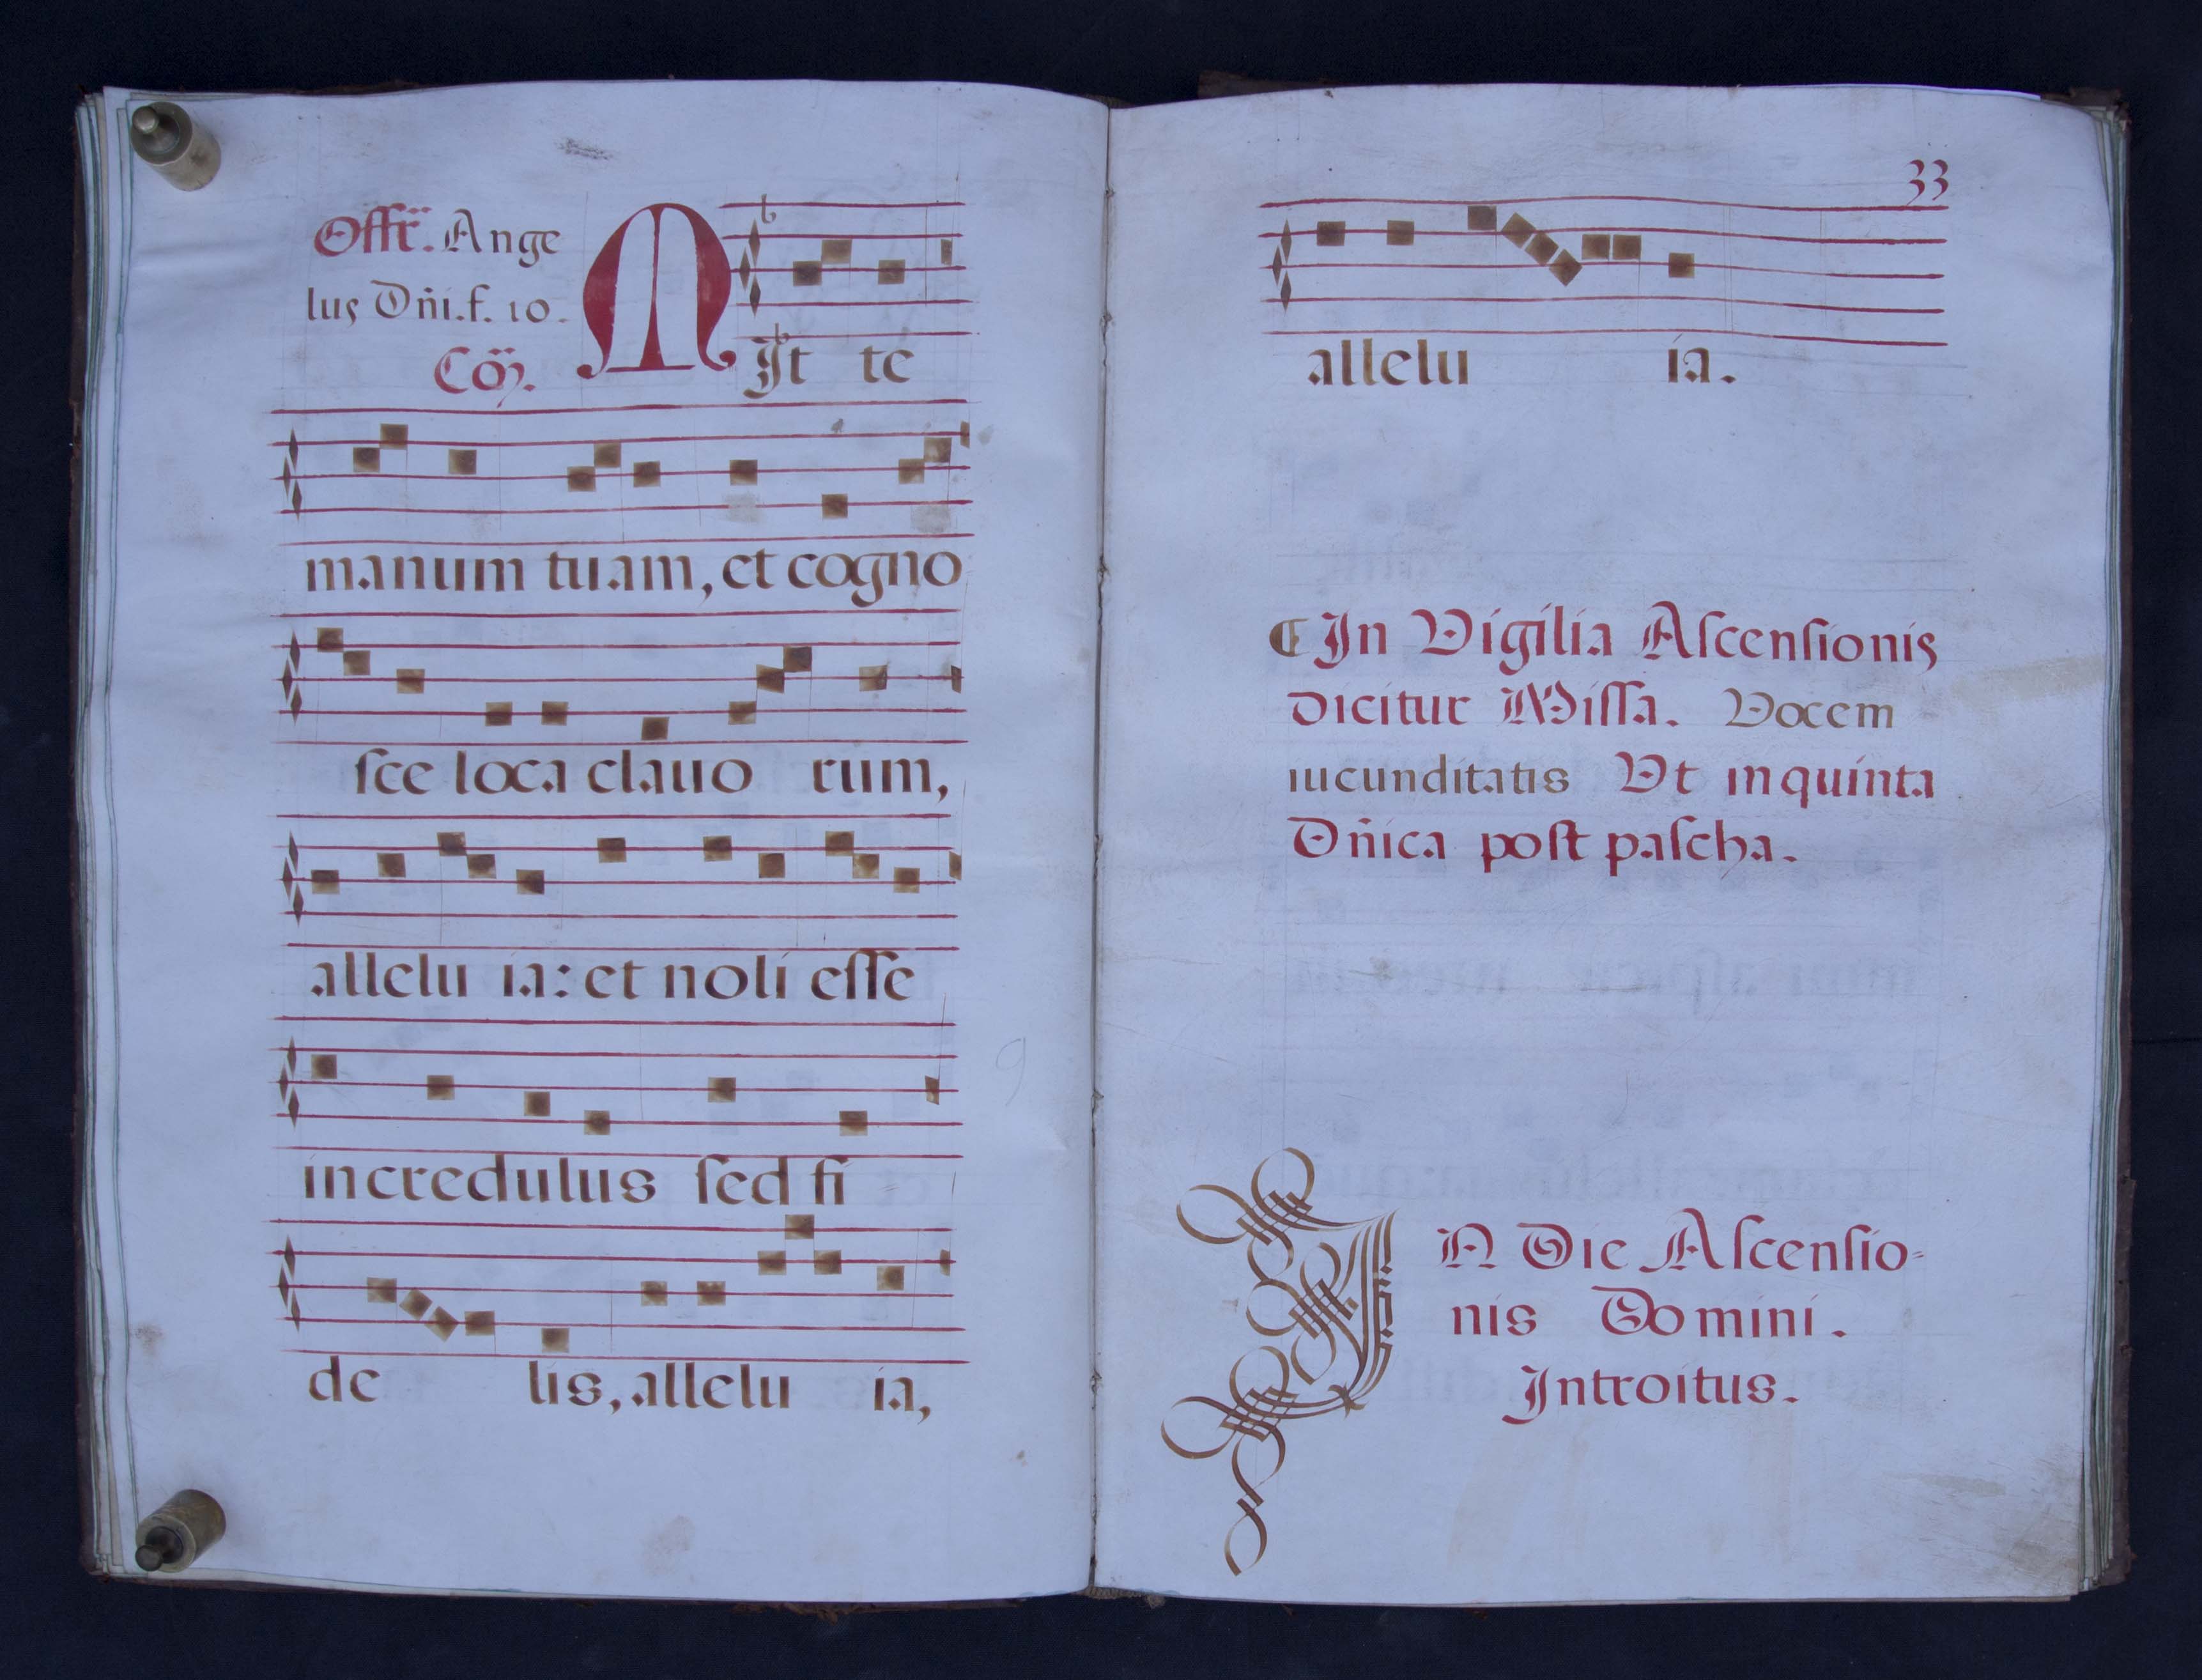 Offr̃. Ange
lus Dñi. f. 10.
Cõ.
MIt te
manum tuam, et cogno
ſce loca clauo rum,
allelu ia: et noli eſſe
incredulus ſed fi
de lis, allelu ia,
33
allelu ia.
¶ In Vigilia Aſcenſionis
dicitur Miſſa. Vocem
iucunditatis Vt in quinta
Dñica poſt paſcha.
IN Die Aſcenſio-
nis Domini.
Introitus.